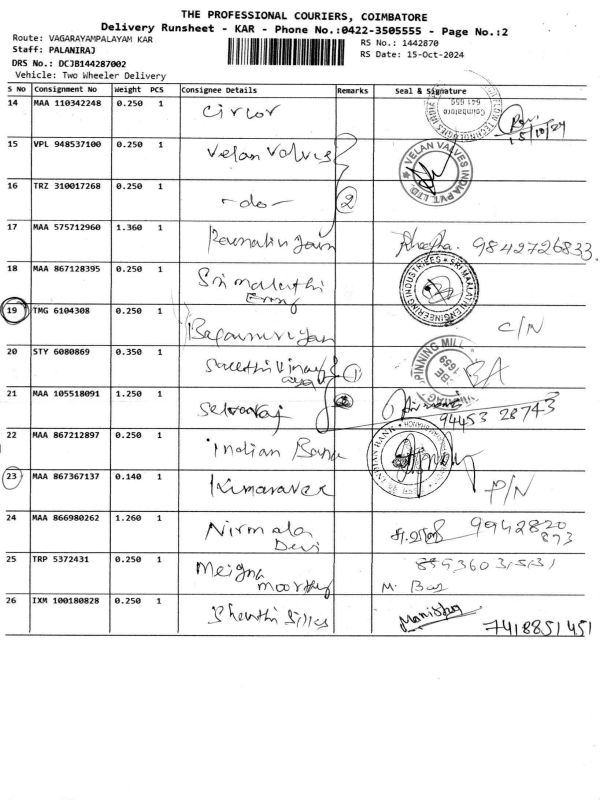 THE PROFESSIONAL COURIERS, COIMBATORE
Delivery Runsheet - KAR - Phone No.:0422-3505555 - Page No.:2
Route: VAGARAYAMPALAYAM KAR
RS No.: 1442870
Staff: PALANIRAJ
RS Date: 15-Oct-2024
DRS No.: DCJB144287002
Vehicle: Two Wheeler Delivery
S No Consignment No Weight PCS Consignee Details Remarks Seal & Signature
14 MAA 110342248 0.250 1 Circor 15/10/24
Coimbatore 641 659
15 VPL 948537100 0.250 1 Velan Valves
VELAN VALVES INDIA PVT. LTD.
16 TRZ 310017268 0.250 1 -do- 2
17 MAA 575712960 1.360 1 9842726833.
18 MAA 867128395 0.250 1 Sri malathi
Eng
SRI MALATHI ENGINEERING INDUSTRIES
19 TMG 6104308 0.250 1 C/N
20 STY 6080869 0.350 1 1 BA
SPINNING MILL
1659
21 MAA 105518091 1.250 1 Selvaraj 94453 28743
22 MAA 867212897 0.250 1 Indian Bank
INDIAN BANK
23 MAA 867367137 0.140 1 Kumaravel P/N
24 MAA 866980262 1.260 1 Nirmala
Devi
9942820
873
25 TRP 5372431 0.250 1 Meigna
moorthy
M.
26 IXM 100180828 0.250 1 Shanthi Silks 7418851451